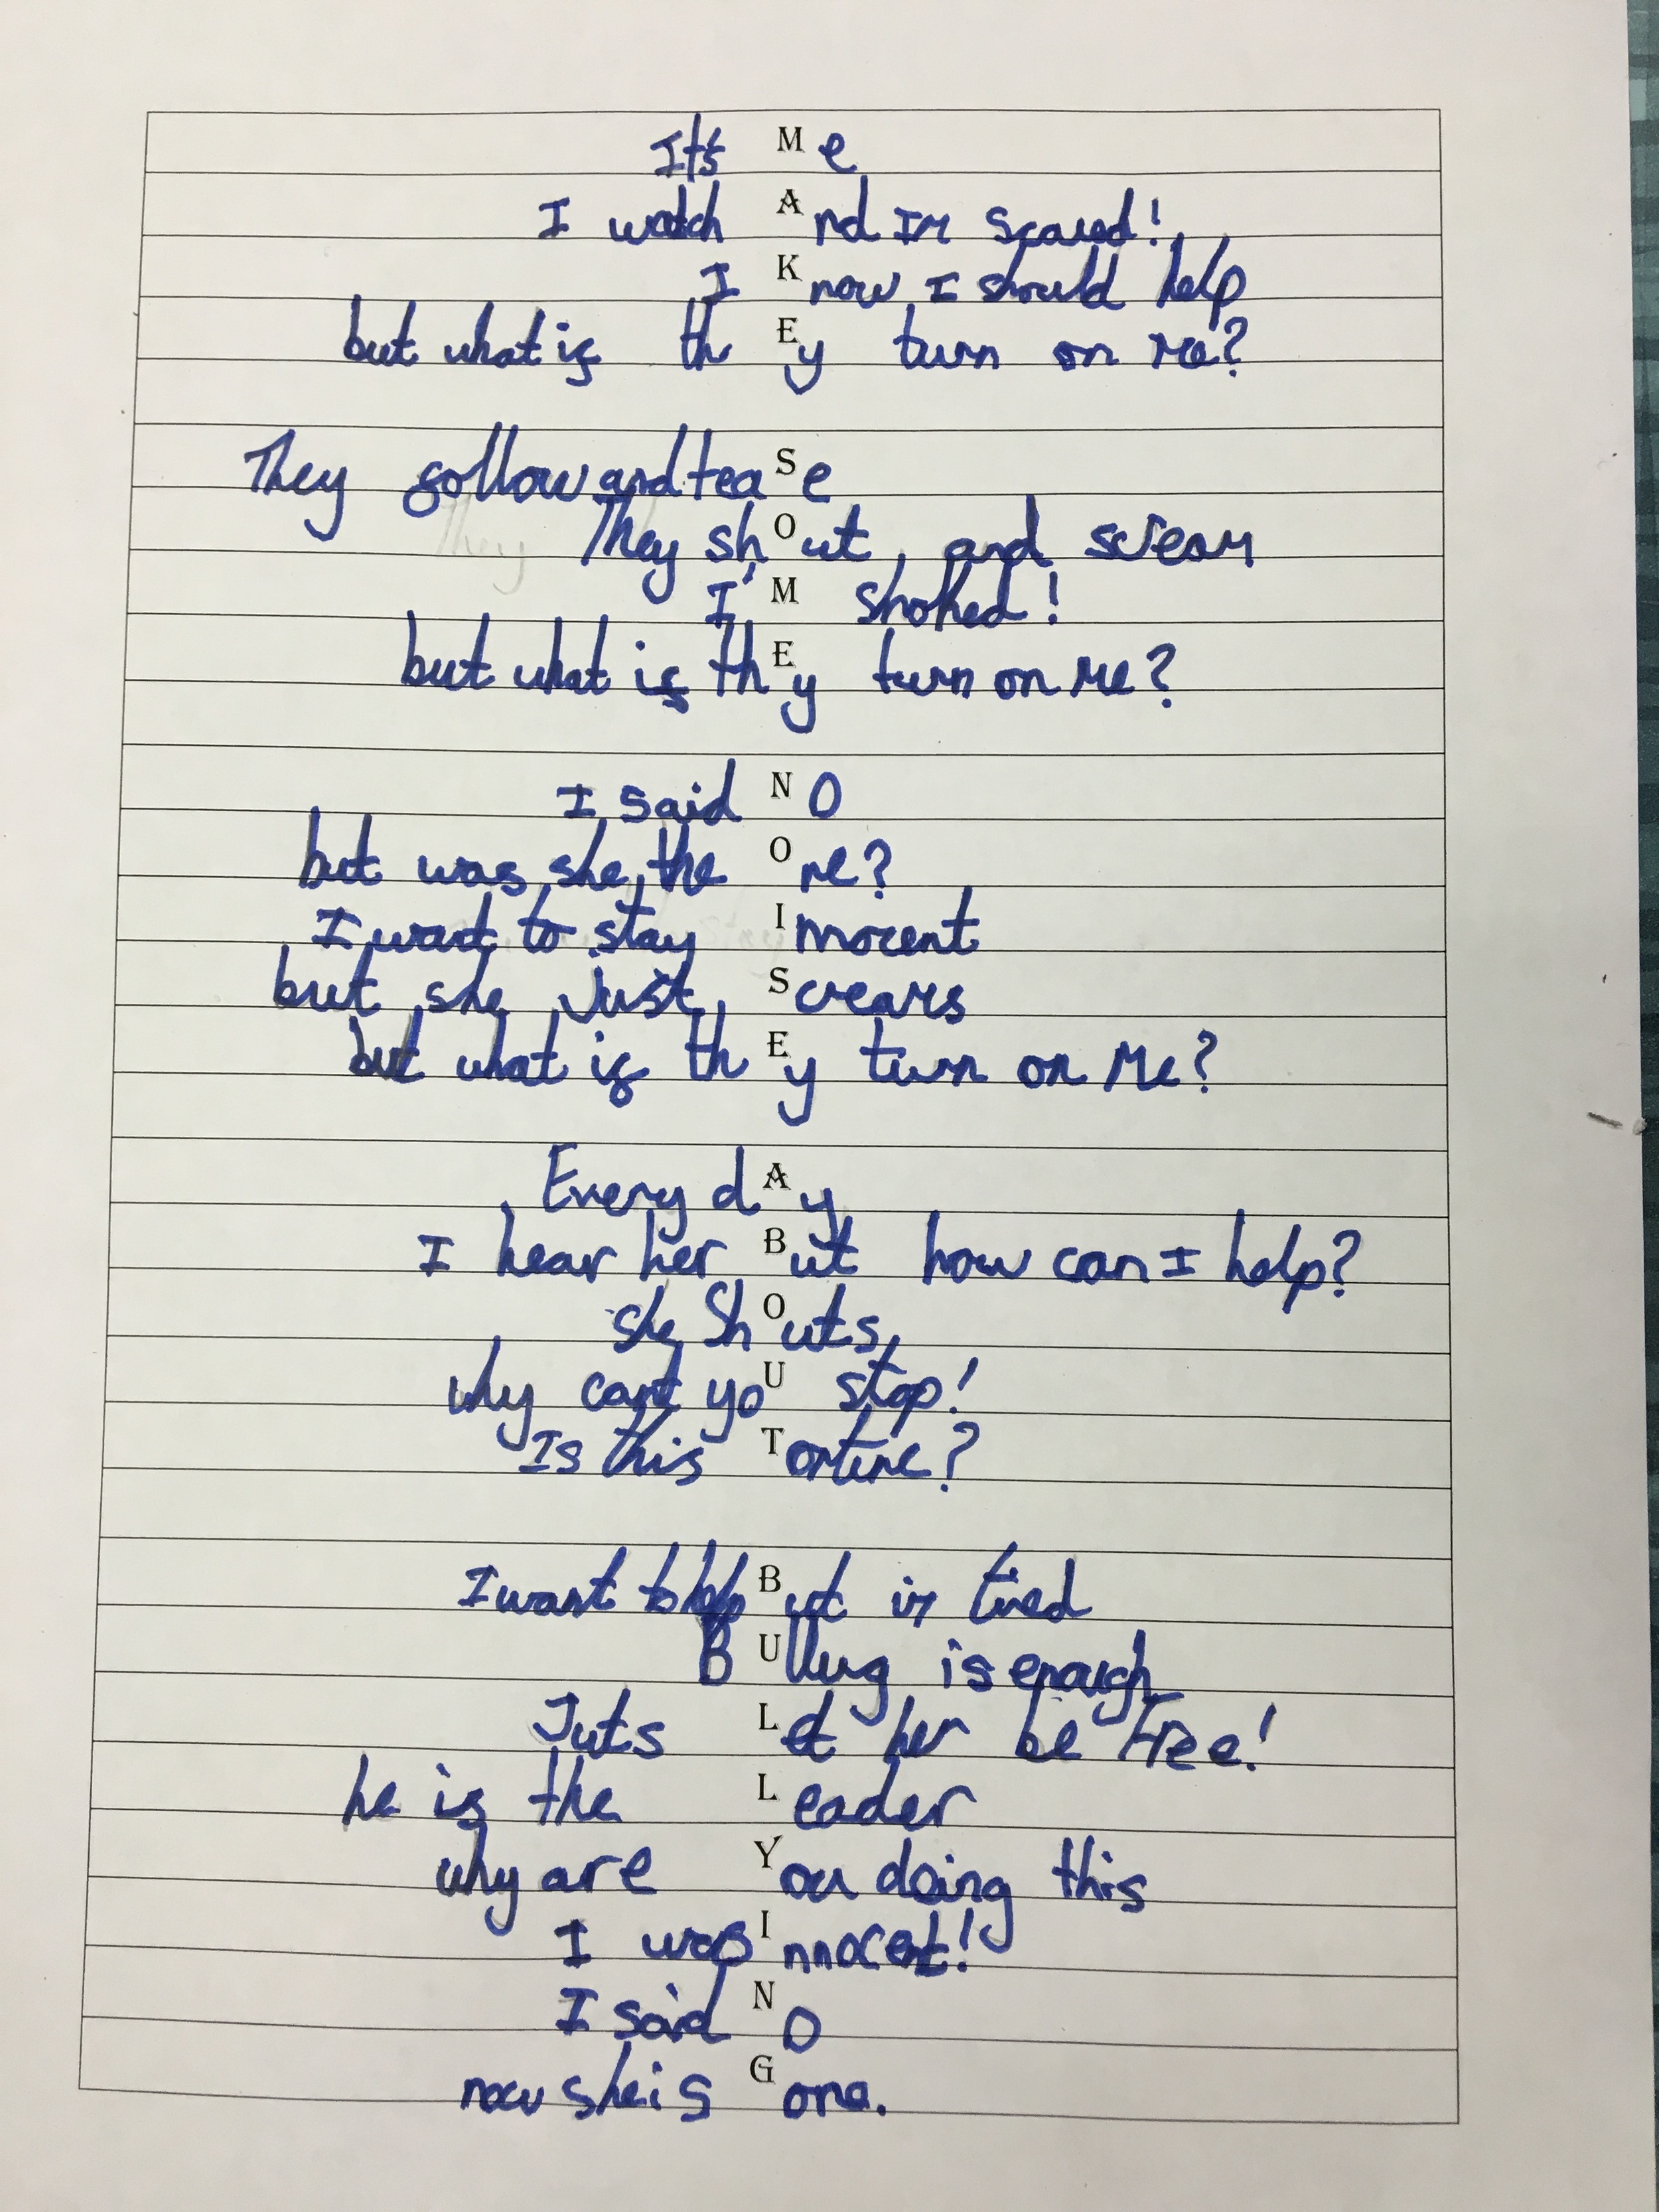 It's Me
I watch And Im scared!
I Know I should help
but what if thEy turn on Me?
They follow and teaSe
They shOut and scream
I'M shoked!
but what if thEy turn on Me?
I said NO
but was she the One?
I want to stay Innocent
but she just Screams
but what if thEy turn on Me?
Every dAy
I hear her But how can I help?
she ShOuts
why cant yoU stop!
Is this Torture?
I want to help But im tired
BUllug is enough
Juts Let her be Free!
he is the Leader
why are You doing this
I was Innocent!
I said NO
now she is Gone.